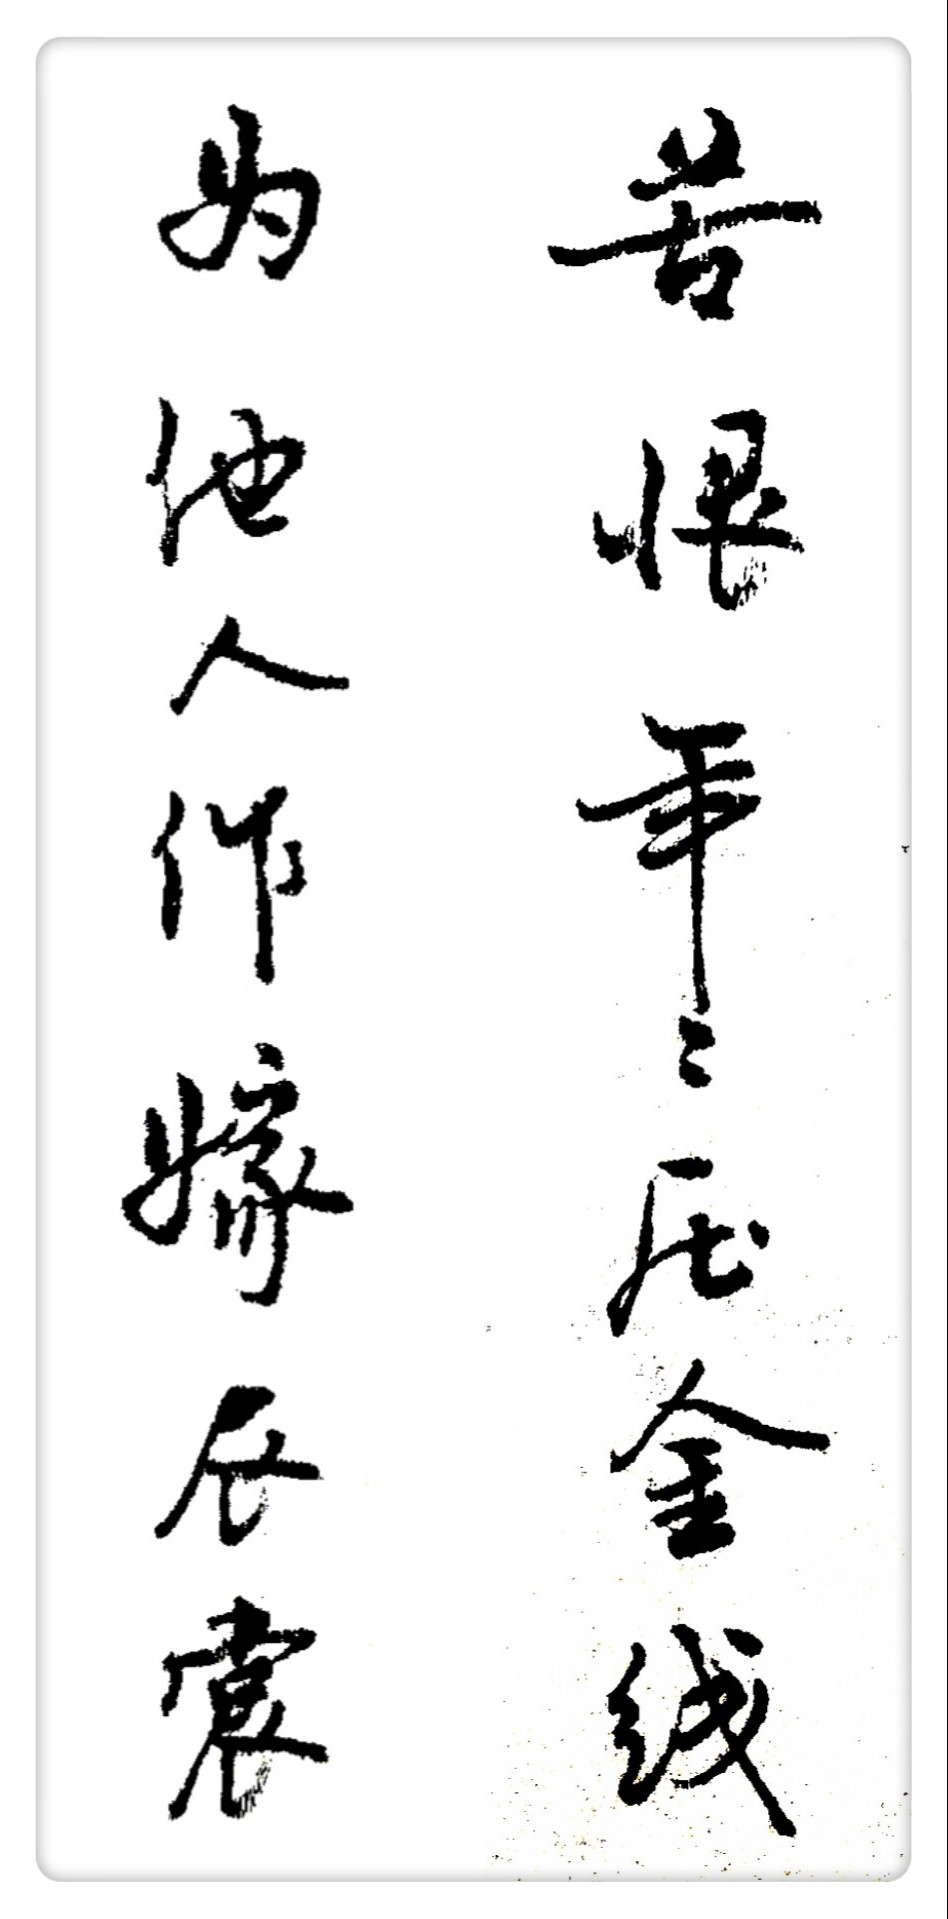 苦恨年々压金线
为他人作嫁衣裳